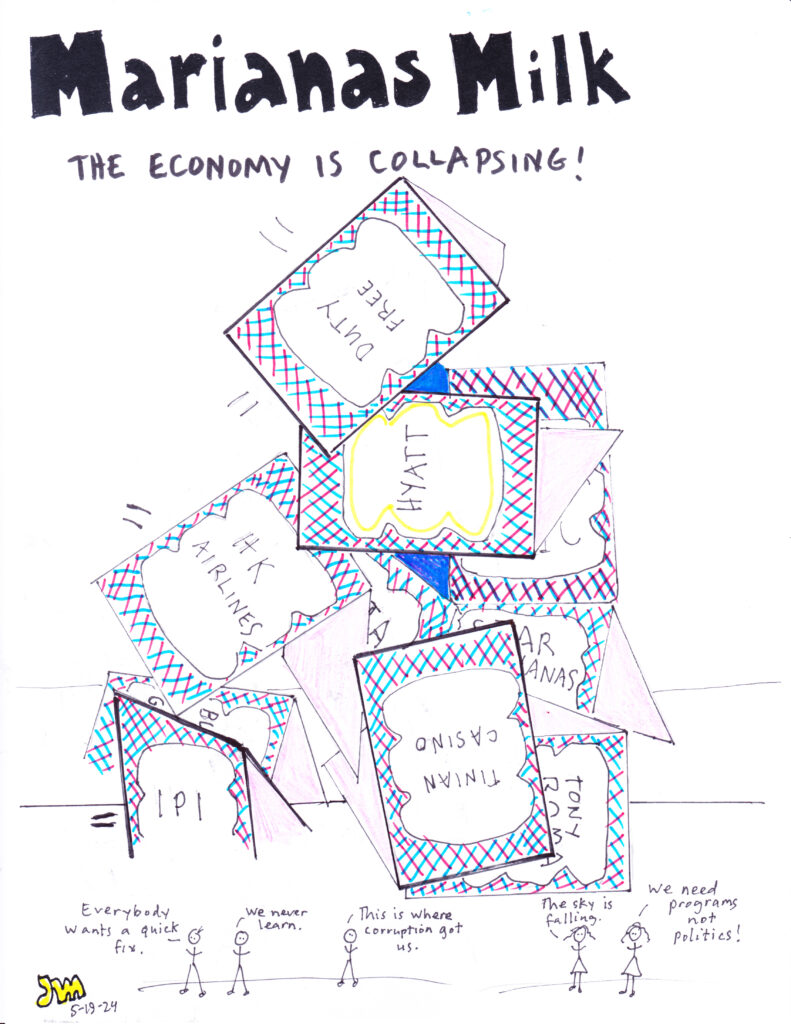 Marianas Milk
THE ECONOMY IS COLLAPSING!
DUTY
FREE
HYATT
HK
AIRLINES
AR
ANAS
TINIAN
CASINO
IPI
TONY
ROMA
Everybody
wants a quick
fix.
We never
learn.
This is where
corruption got
us.
The sky is
falling.
We need
programs
not
politics!
JM
5-19-24